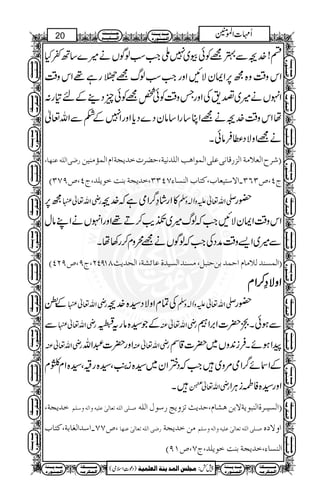 20
أمہات المؤمنین
قسم! خدیجہ سے بہتر مجھے کوئی بیوی نہیں ملی جب سب لوگوں نے میرے ساتھ کفر کیا
اس وقت وہ مجھ پر ایمان لائیں اور جب سب لوگ مجھے جھٹلا رہے تھے اس وقت
انہوں نے میری تصدیق کی اور جس وقت کوئی شخص مجھے کوئی چیز دینے کے لئے تیار نہ
تھا اس وقت خدیجہ نے مجھے اپنا سارا سامان دے دیا اور انہیں کے شکم سے اللہ تعالیٰ
نے مجھے اولاد عطا فرمائی۔
(شرح العلامۃ الزرقانی علی المواھب اللدنیۃ، حضرت خدیجۃ ام المؤمنین رضی اللہ عنہا،
ج٤، ص٣٦٣۔ الاستیعاب، کتاب النساء ٣٣٤٧، خدیجۃ بنت خویلد، ج٤، ص٣٧٩)
حضور صلی اللہ تعالیٰ علیہ والہ وسلم کا ارشاد گرامی ہے کہ خدیجہ رضی اللہ تعالیٰ عنہا مجھ پر
اس وقت ایمان لائیں جب کہ لوگ میری تکذیب کرتے تھے اور انہوں نے اپنے مال
سے میری ایسے وقت مدد کی جب کہ لوگوں نے مجھے محروم کر رکھا تھا۔
(المسند للامام احمد بن حنبل، مسند السیدۃ عائشۃ، الحدیث ٢٤٩١٨، ج٩، ص٤٢٩)
اولادِ کرام
حضور صلی اللہ تعالیٰ علیہ والہ وسلم کی تمام اولاد سیدہ خدیجہ رضی اللہ تعالیٰ عنہا کے بطن
سے ہوئی۔ بجز حضرت ابراہیم رضی اللہ تعالیٰ عنہ کے جو سیدہ ماریہ قبطیہ رضی اللہ تعالیٰ عنہا سے
پیدا ہوئے۔ فرزندوں میں حضرت قاسم رضی اللہ تعالیٰ عنہ اور حضرت عبد اللہ رضی اللہ تعالیٰ عنہ
کے اسمائے گرامی مروی ہیں جب کہ دختران میں سیدہ زینب، سیدہ رقیہ، سیدہ ام کلثوم
اور سیدہ فاطمہ زہرا رضی اللہ تعالیٰ عنہن ہیں۔
(السیرۃ النبویۃ لابن ھشام، حدیث تزویج رسول اللہ صلی اللہ تعالیٰ علیہ والہ وسلم خدیجۃ،
اولادہ صلی اللہ تعالیٰ علیہ والہ وسلم من خدیجۃ رضی اللہ تعالیٰ عنہا، ص٧٧۔ اسد الغابۃ، کتاب
النساء، خدیجۃ بنت خویلد، ج٧، ص٩١)
پیش کش: مجلس المدینۃ العلمیۃ (دعوت اسلامی)